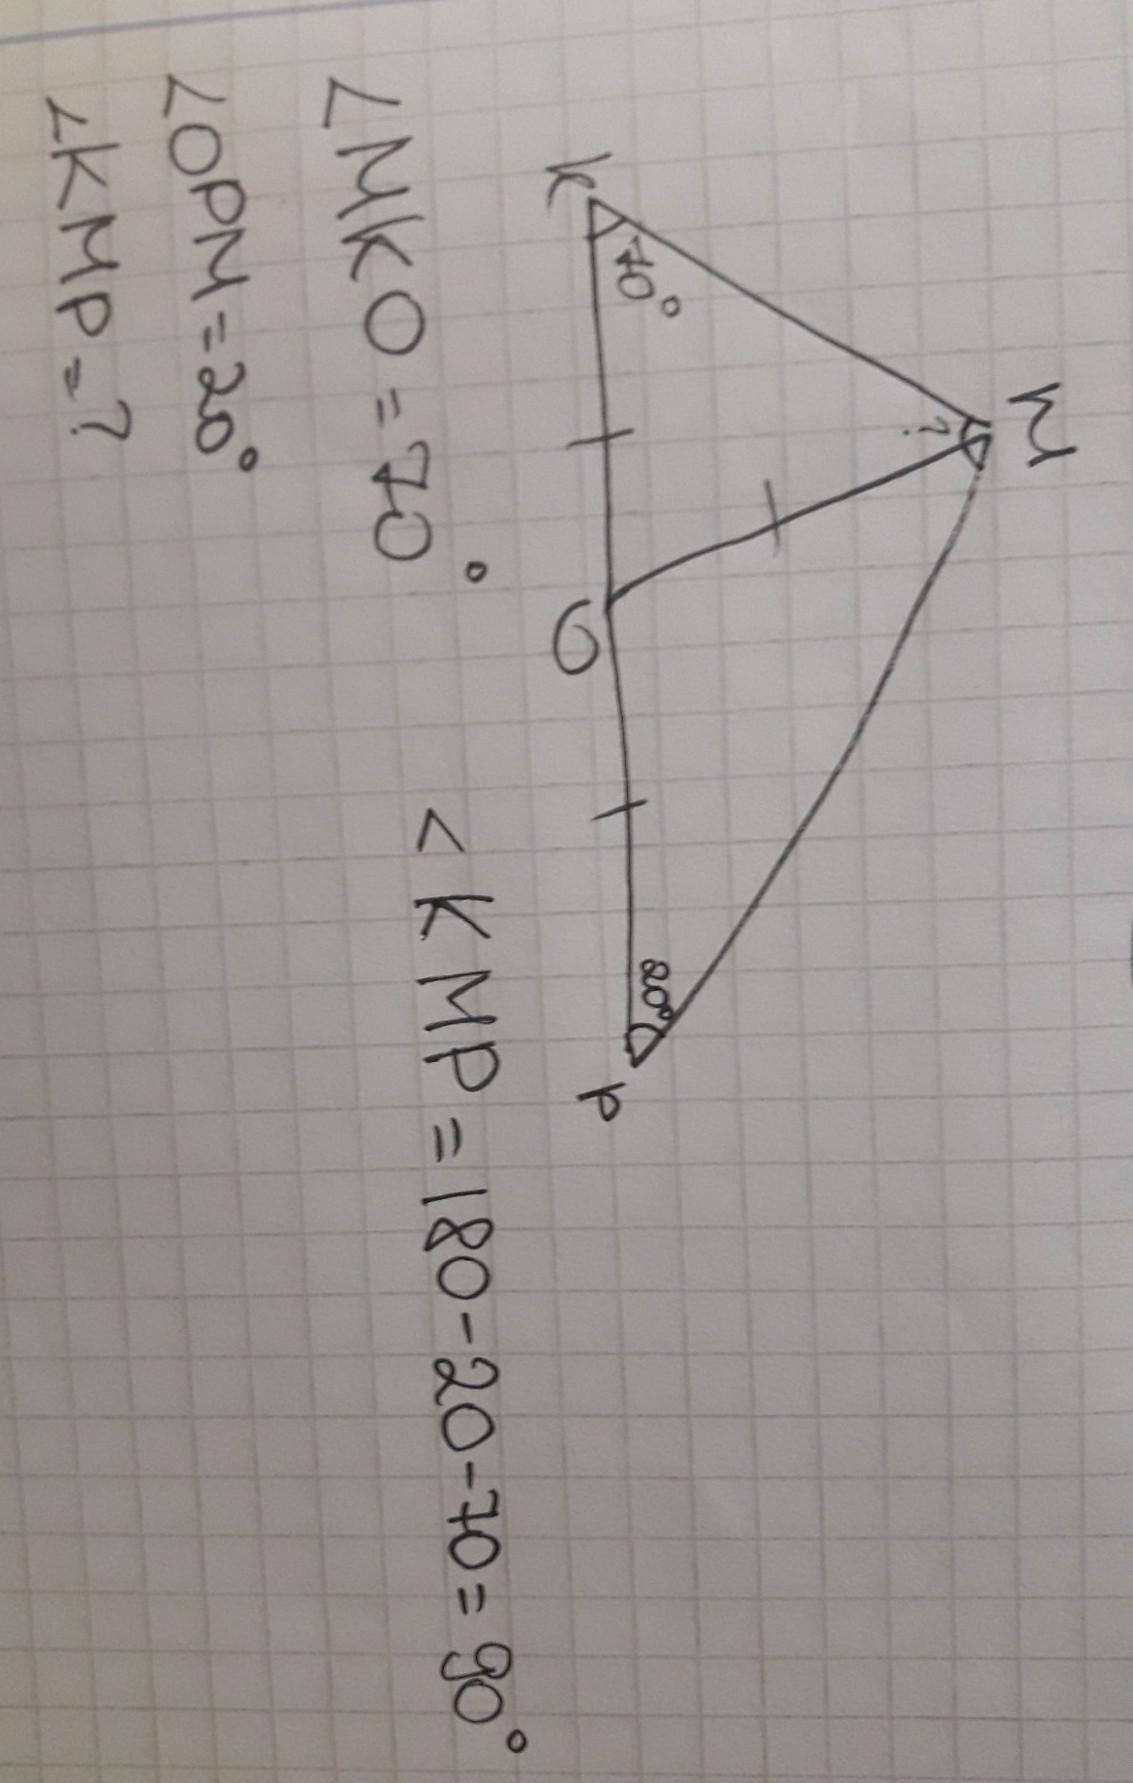 M
K
70°
?
O
20°
P
∠MKO=70°
∠OPM=20°
∠KMP=?
<KMP=180-20-70=90°